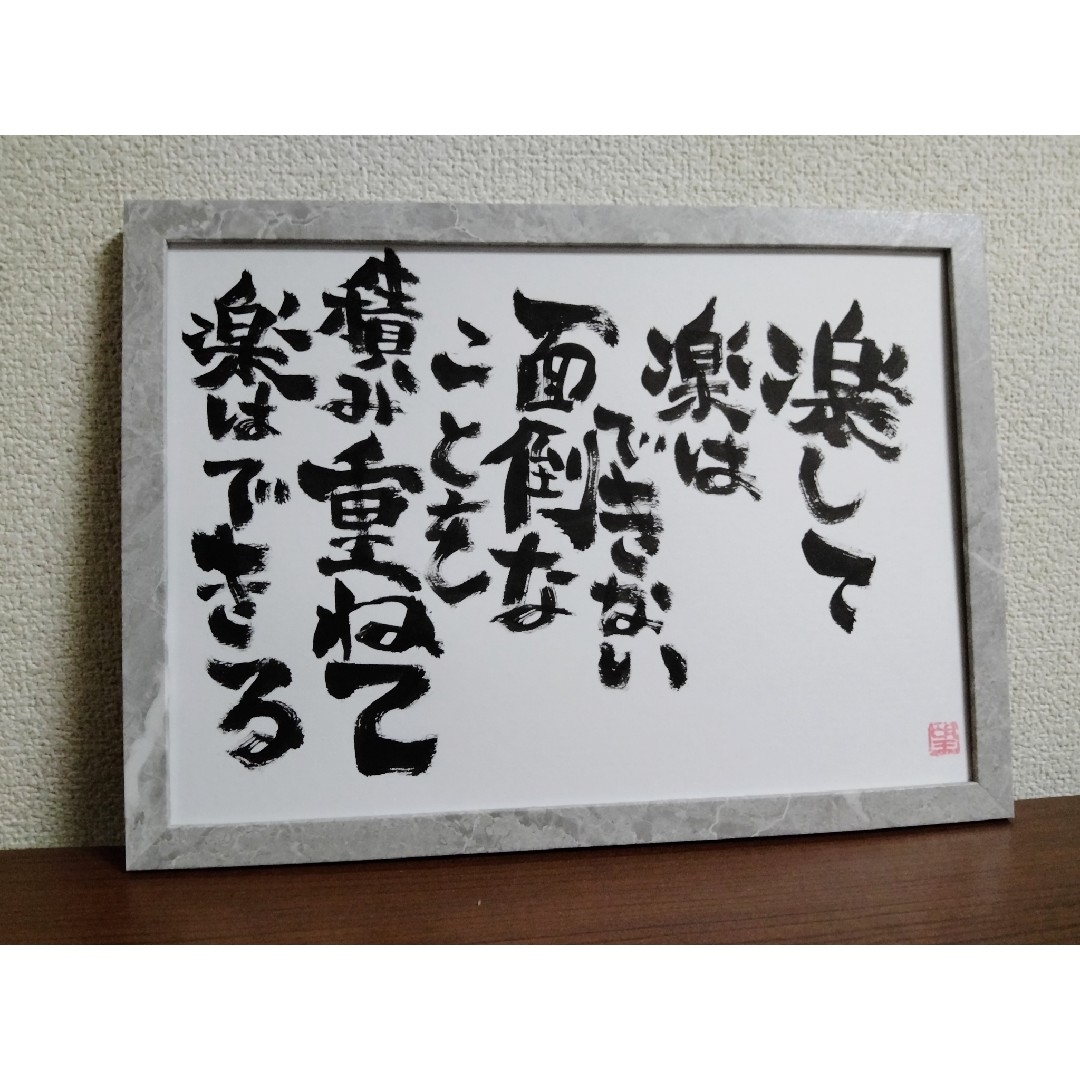 楽して
楽は
できない
面倒な
ことを
積み重ねて
楽はできる